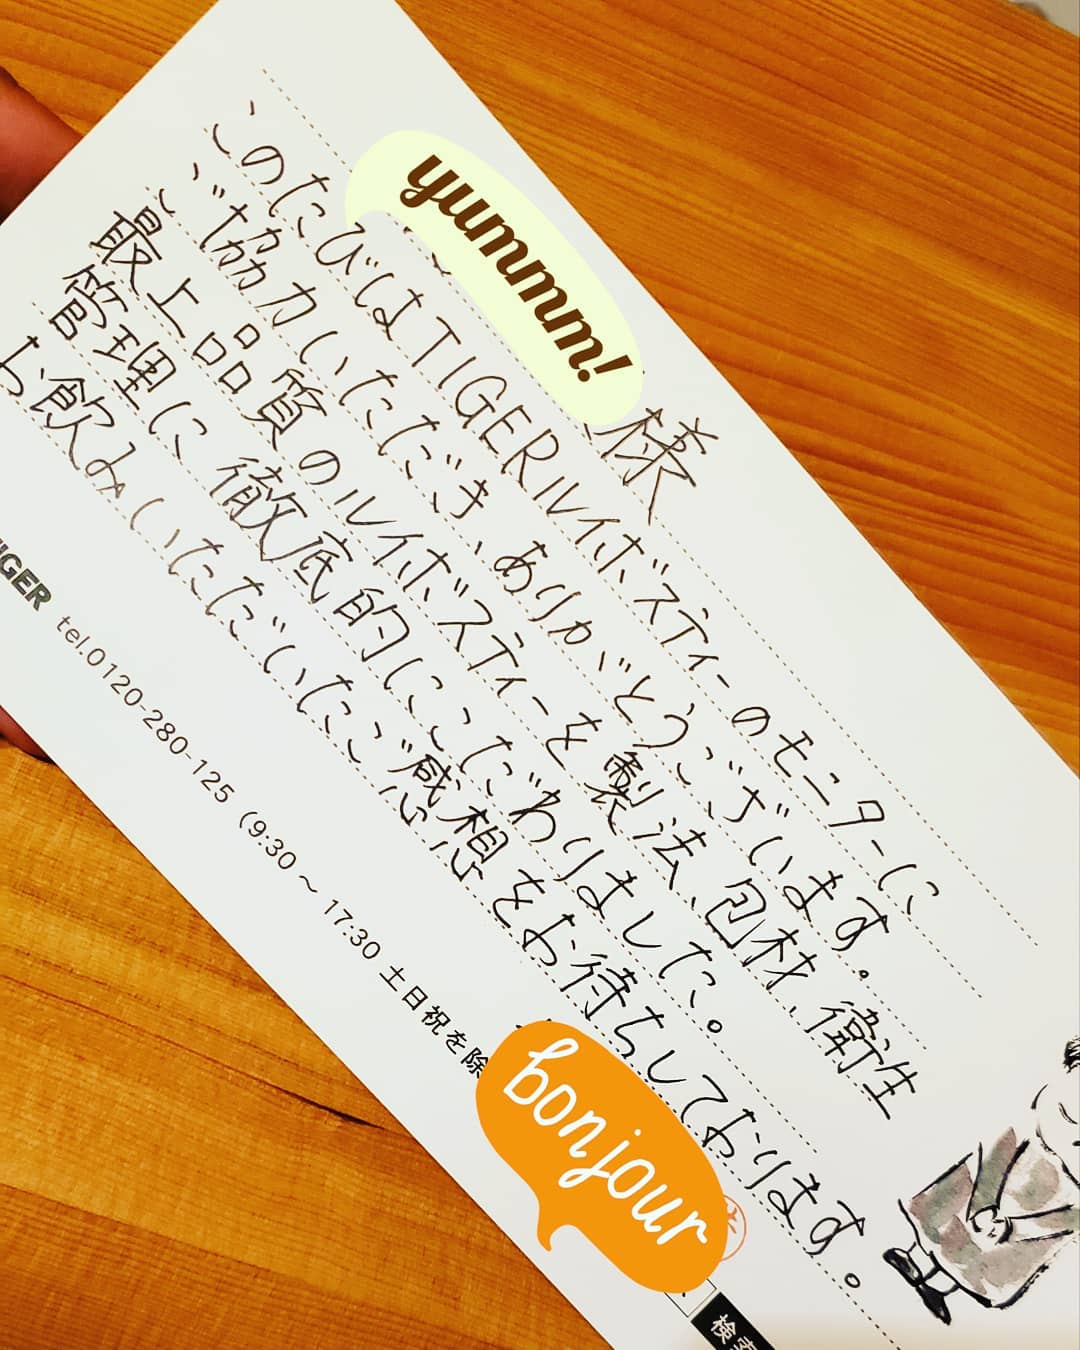 yummm!
様
このたびはTIGERルイボスティーのモニターに
ご協力いただき、ありがとうございます。
最上品質のルイボスティーを製法、包材、衛生
管理に徹底的にこだわりました。
お飲みいただいたご感想をお待ちしております。
TIGER tel.0120-280-125 (9:30～17:30 土日祝を除
bonjour
検索